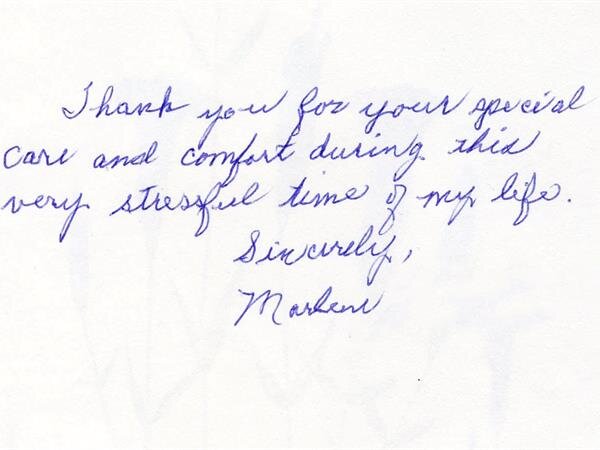 Thank you for your special
care and comfort during this
very stressful time of my life.
Sincerely,
Marlene